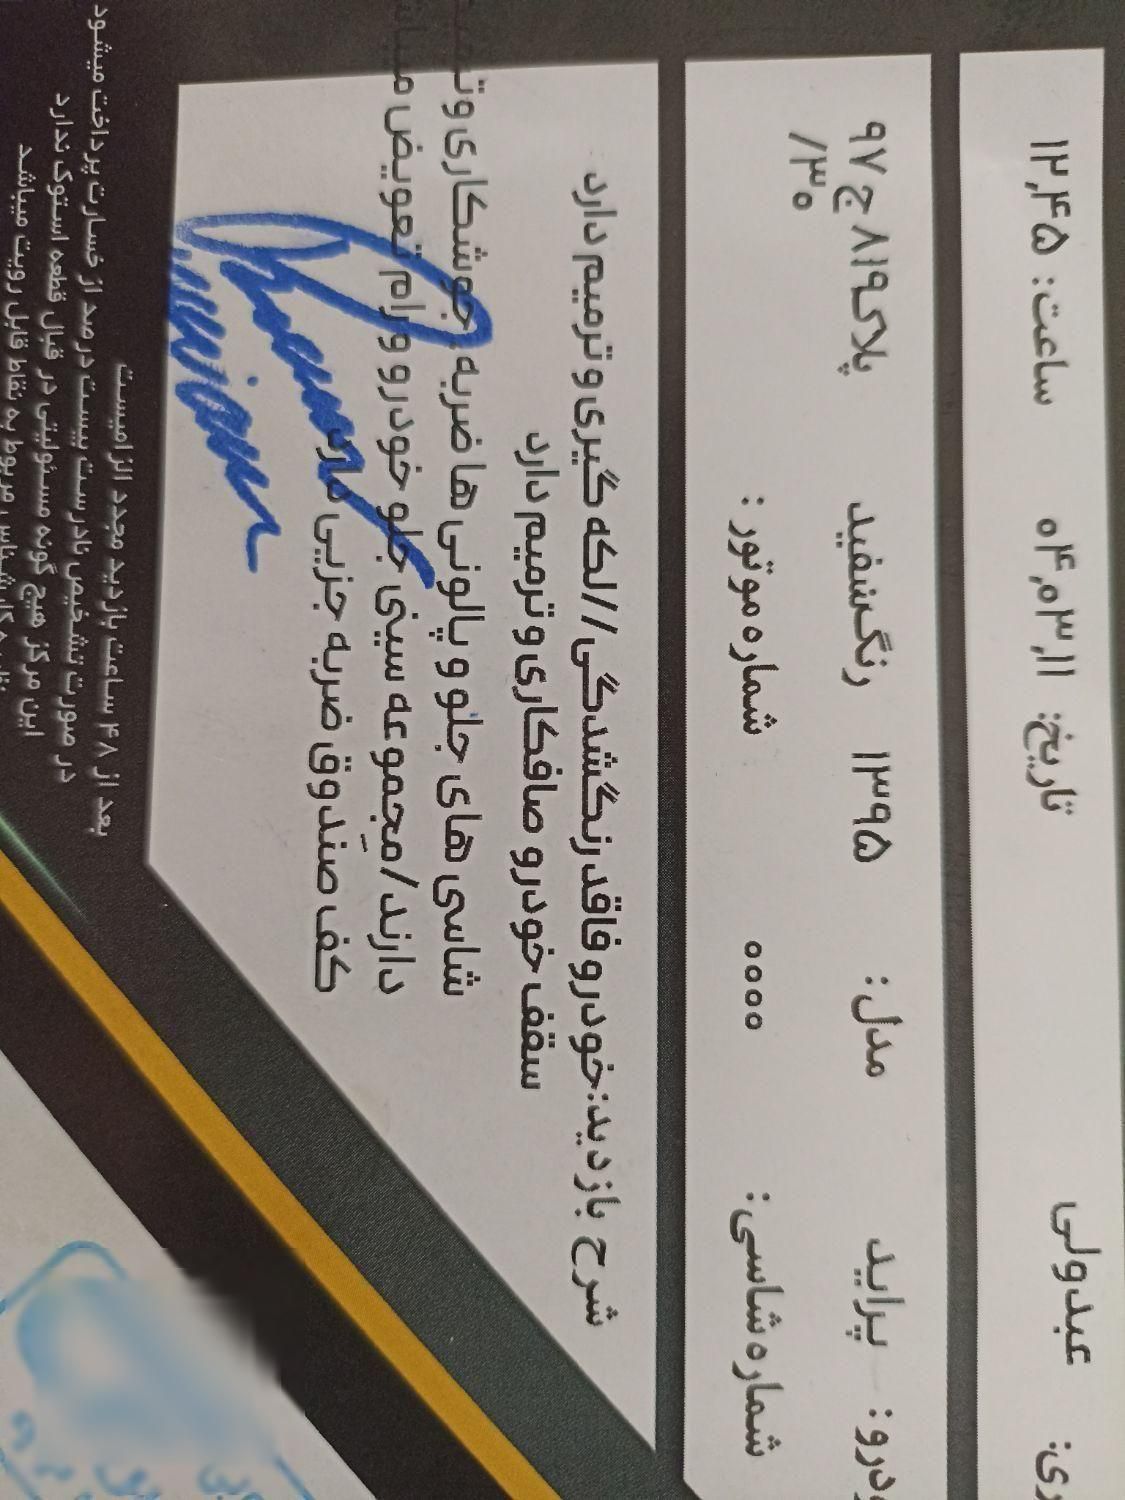 ری: عبدولی تاریخ: ۰۴,۰۳,۱۱ ساعت: ۱۲,۴۵
ودرو: پراید مدل: ۱۳۹۵ رنگ سفید پلاک ۸۱۹ ج ۹۷
/۳۰
شماره شاسی: ۰۰۰۰ شماره موتور:
شرح بازدید: خودرو فاقد رنگ شدگی // لکه گیری و ترمیم دارد
سقف خودرو صافکاری و ترمیم دارد
شاسی های جلو و پالونی ها ضربه. جوشکاری و
دارند / مجموعه سینی جلو خودرو و رام تعویض
کف صندوق ضربه جزیی دارد
بعد از ۴۸ ساعت بازدید مجدد الزامیست
در صورت تشخیص نادرست بیست درصد از خسارت پرداخت میشود
این مرکز هیچ گونه مسئولیتی در قبال قطعه استوک ندارد
مربوط به نقاط قابل رویت میباشد